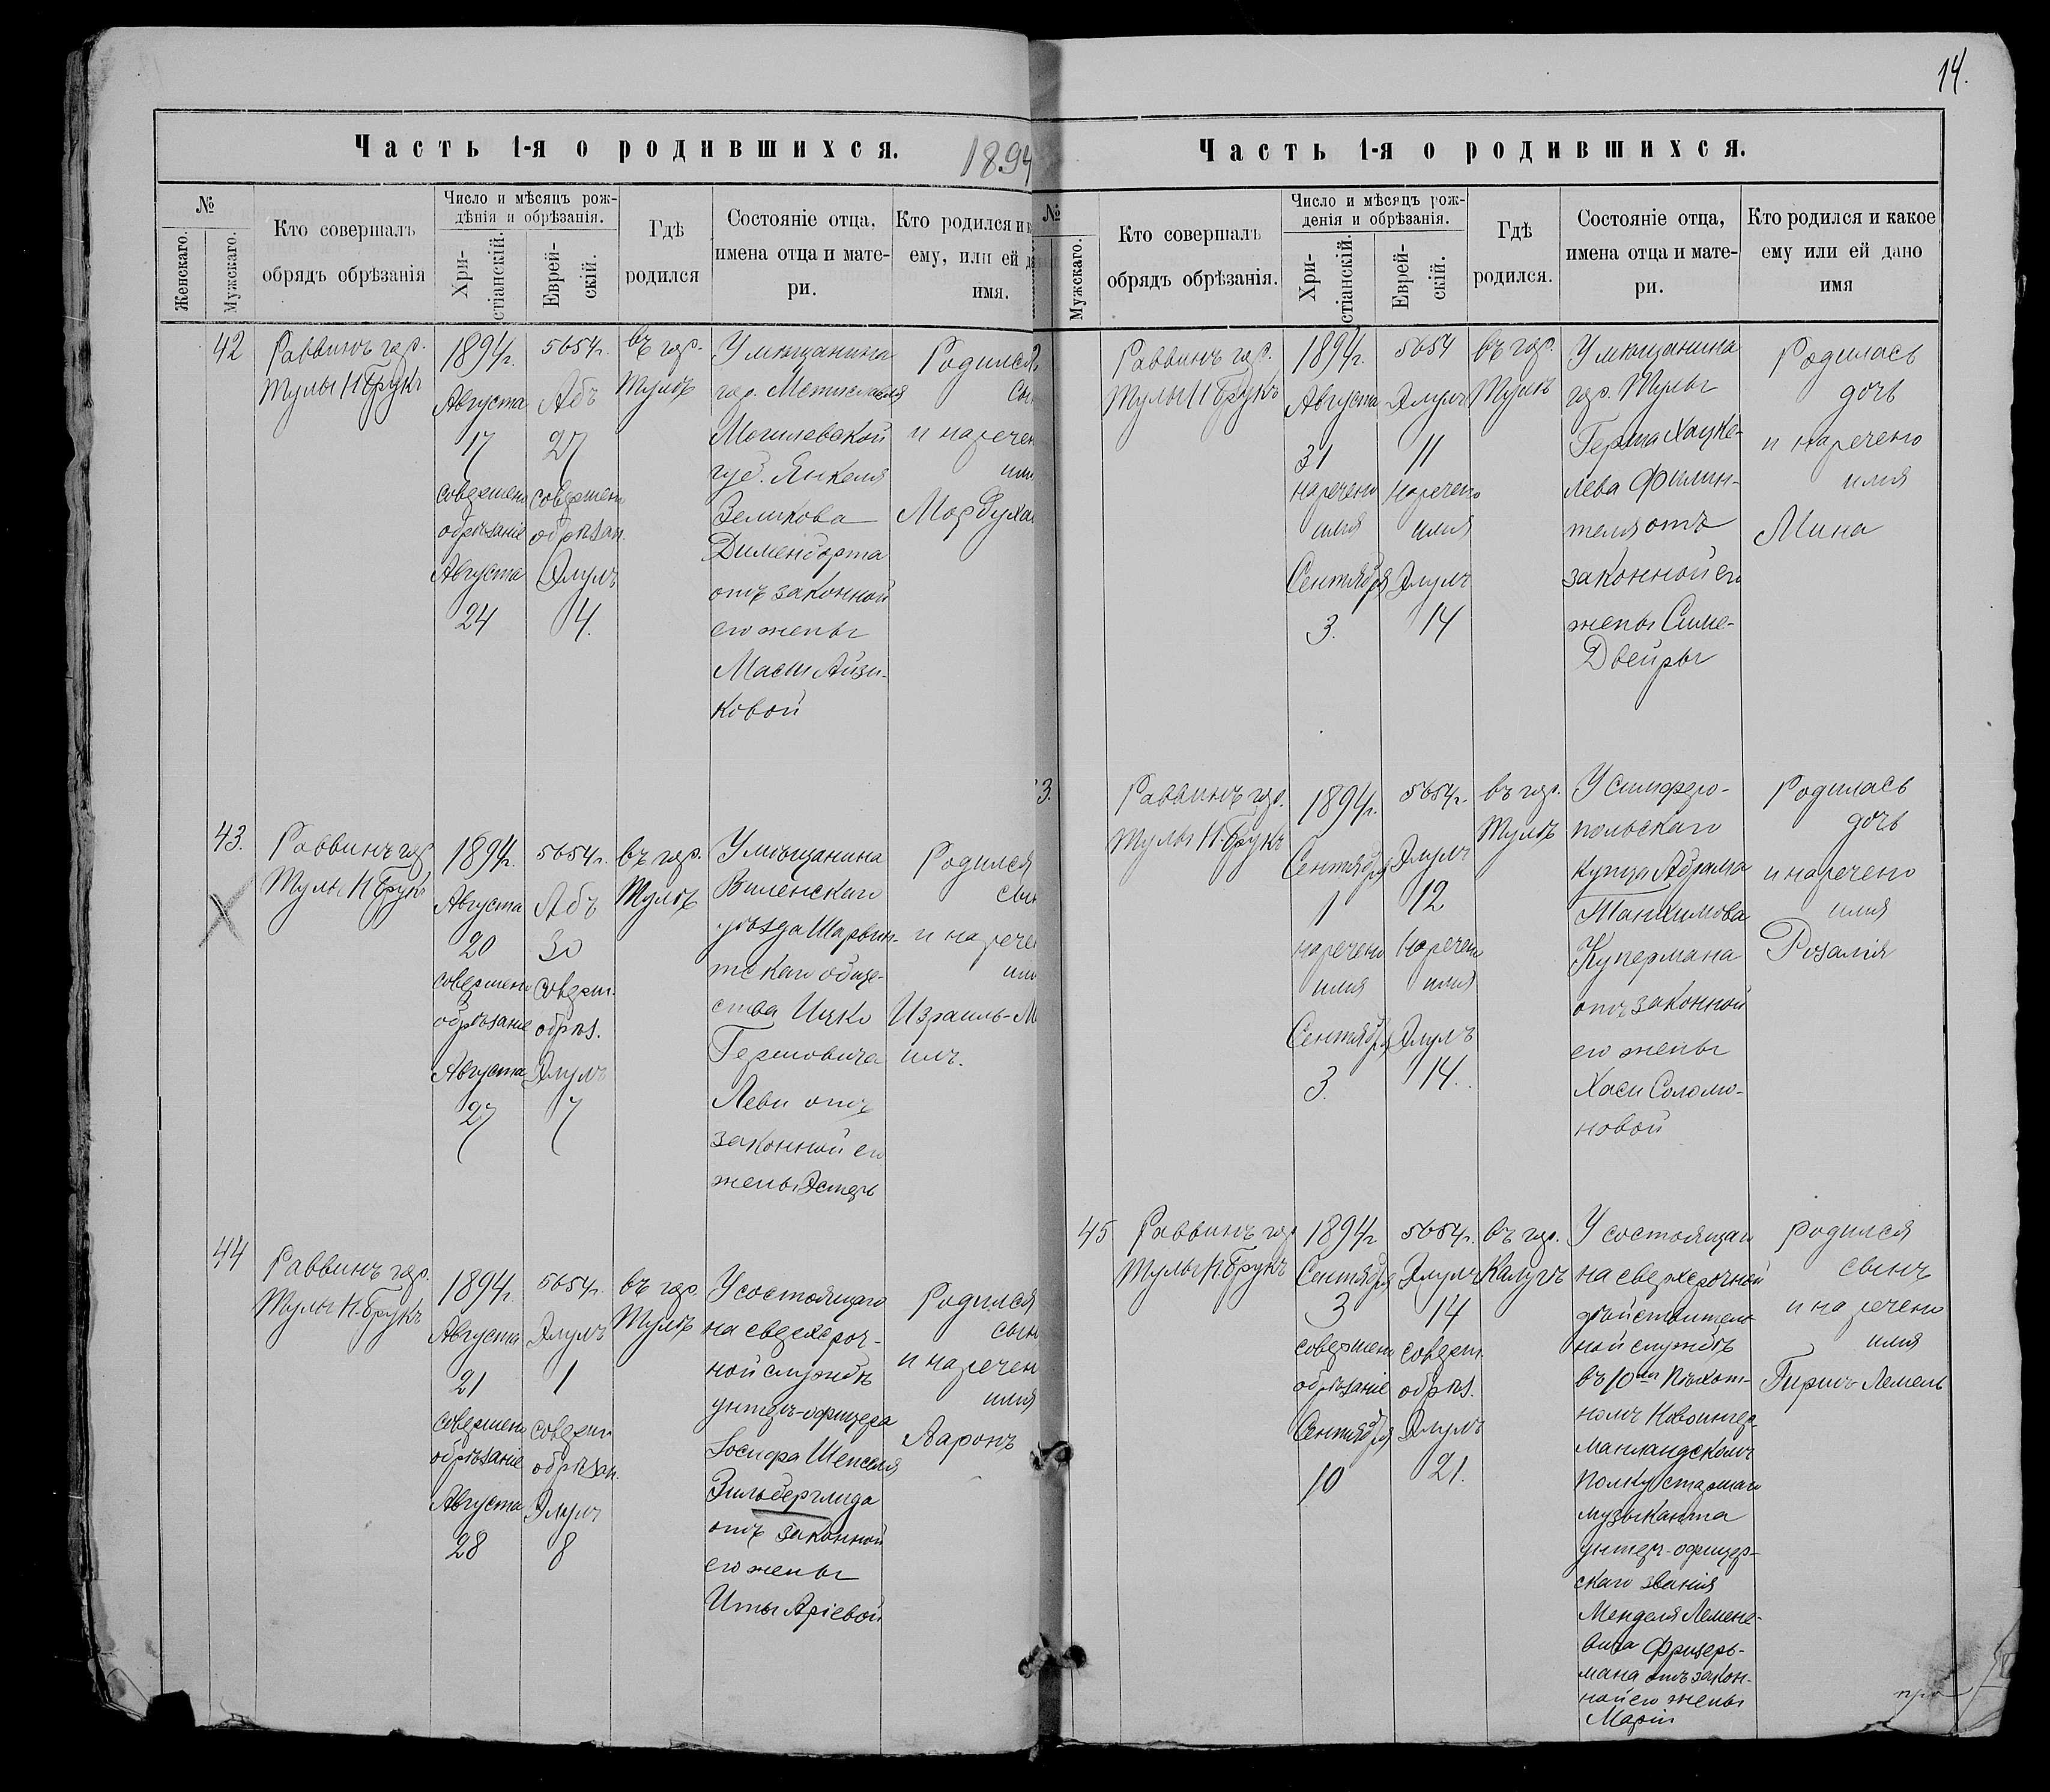 Часть 1-я о родившихся.
1894
№
Женскаго.
Мужскаго.
Кто совершалъ
обрядъ обрѣзанія
Число и мѣсяцъ рож-
дѣнія и обрѣзанія.
Хри-
стіанскій.
Еврей-
скій.
Гдѣ
родился
Состояніе отца,
имена отца и мате-
ри.
Кто родился и к
ему, или ей д
имя.
42
Раввинъ гор.
Тулы И Брукъ
1894г.
Августа
17
совершено
обрѣзаніе
Августа
24
5654г.
Абъ
27
совершено
обрѣзан.
Элулъ
4.
въ гор.
Тулѣ
У мѣщанина
гор. Мстиславля
Могилевской
губ. Янкеля
Зеликова
Дименборта
отъ законной
его жены
Маси Айзи-
ковой
Родился
сы
и наречен
имя
Мордуха
43.
Раввинъ гор
Тулы И Брукъ
1894г.
Августа
20
совершено
обрѣзаніе
Августа
27
5654г.
Абъ
30
соверш.
обрѣз.
Элулъ
7
въ гор.
Тулѣ
У мѣщанина
Виленскаго
уѣзда Ширвин-
тскаго обще-
ства Ицко
Гершовича
Леви отъ
законной его
жены Эстеръ
Родился
сын
и нарече
имя
Израиль-М
илъ.
44
Раввинъ гор.
Тулы И. Брукъ
1894г.
Августа
21
совершено
обрѣзаніе
Августа
28
5654г.
Элулъ
1
соверш
обрѣзан.
Элулъ
8
въ гор.
Тулѣ
У состоящаго
на сверхсроч-
ной службѣ
унтеръ-офицера
Іосифа Шепселя
Зильберглида
отъ законной
его жены
Иты Аріевой
Родился
сынъ
и наречен
имя
Ааронъ
14.
Часть 1-я о родившихся.
№
Мужскаго.
Кто совершалъ
обрядъ обрѣзанія.
Число и мѣсяцъ рож-
денія и обрѣзанія.
Хри-
стіанскій.
Еврей-
скій.
Гдѣ
родился.
Состояніе отца,
имена отца и мате-
ри.
Кто родился и какое
ему или ей дано
имя
Раввинъ гор.
Тулы И Брукъ
1894г.
Августа
31
наречено
имя
Сентября
3.
5654
Элулъ
11
наречено
имя
Элулъ
14
въ гор.
Тулѣ
У мѣщанина
гор. Тулы
Герша Хацке-
лева Финкен-
теля отъ
законной его
жены Симе-
Двейры
Родилась
дочь
и наречено
имя
Мина
3.
Раввинъ гор.
Тулы И. Брукъ
1894г.
Сентября
1
наречено
имя
Сентября
3.
5654г.
Элулъ
12
наречено
имя
Элулъ
14.
въ гор.
Тулѣ
У симферо-
польскаго
купца Абрама
Танхимова
Купермана
отъ законной
его жены
Хаси Соломо-
новой
Родилась
дочь
и наречено
имя
Розалія
45
Раввинъ гор
Тулы И. Брукъ
1894г
Сентября
3
совершено
обрѣзаніе
Сентября
10
5654г.
Элулъ
14
соверш.
обрѣз.
Элулъ
21.
въ гор.
Калугѣ
У состоящаго
на сверхсрочной
дѣйствитель
ной службѣ
въ 10мъ Пѣхот-
номъ Новоингер-
манландскомъ
полку старшаго
музыканта
унтеръ-офицер-
скаго званія
Менделя Лемеле-
вича Фридерь-
мана отъ закон-
ной его жены
Маріи
родился
сынъ
и наречено
имя
Гиршъ Лемель